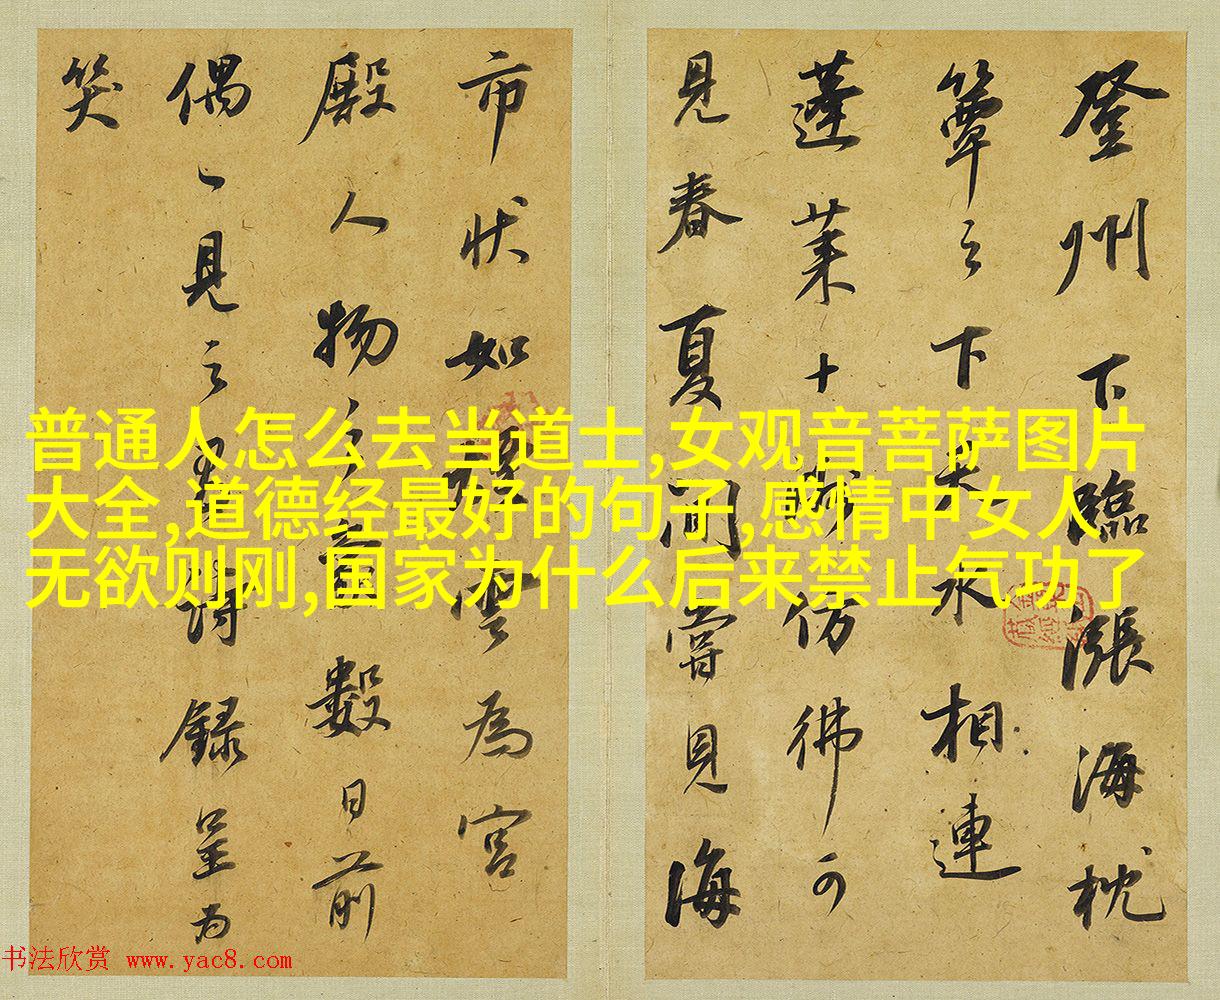 登州下臨漲海枕
簟之下天水相連
蓬莱十仿彿可
見春夏間嘗見海
市状如雲為宮
殿人物數日前
偶一見之詩録呈為
笑
普通人怎么去当道士,女观音菩萨图片
大全,道德经最好的句子,感情中女人
无欲则刚,国家为什么后来禁止气功了
书法欣赏 www.yac8.com